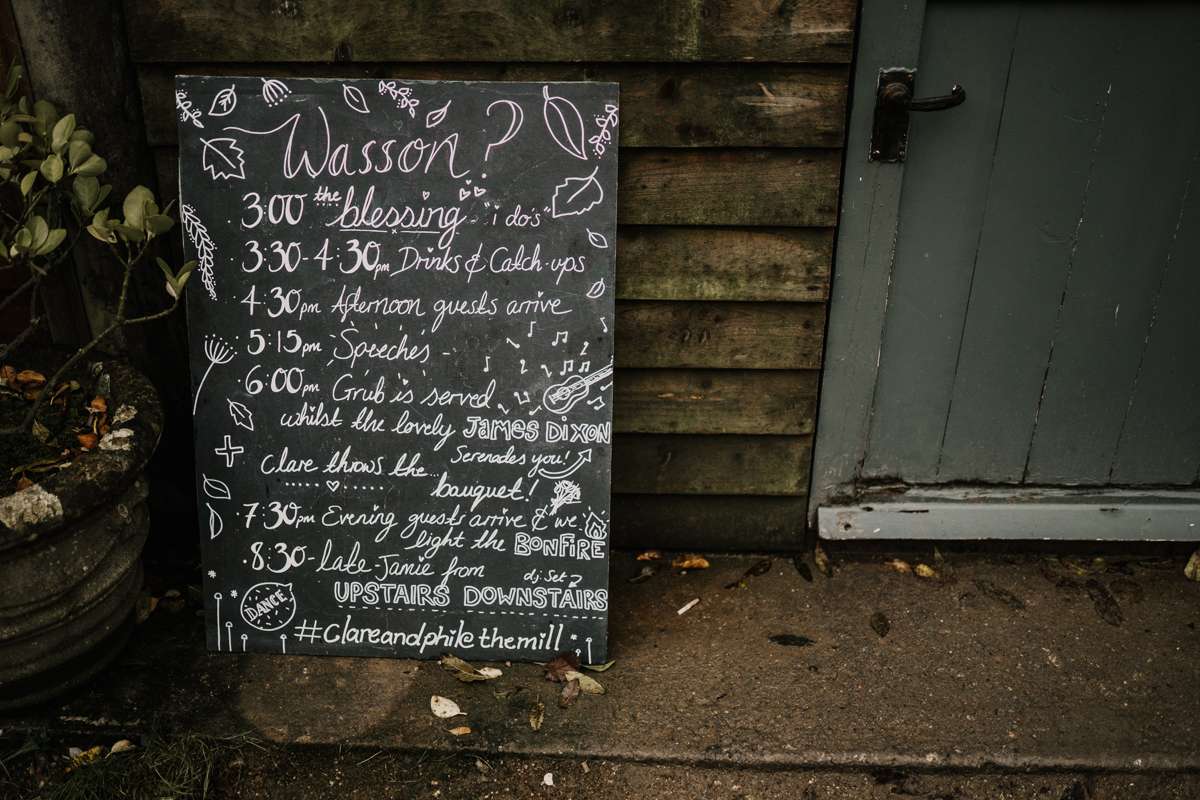 Wasson?
3:00 the blessing - "i do's"
3:30-4:30pm Drinks & Catch-ups
4:30pm Afternoon guests arrive
5:15pm Speeches -
6:00pm Grub is served
whilst the lovely JAMES DIXON
Serenades you!
+ Clare throws the..
bouquet!
7:30pm Evening guests arrive & we
light the BONFIRE
8:30-late-Jamie from
dj set
UPSTAIRS DOWNSTAIRS
DANCE
#Clareandphil@themill